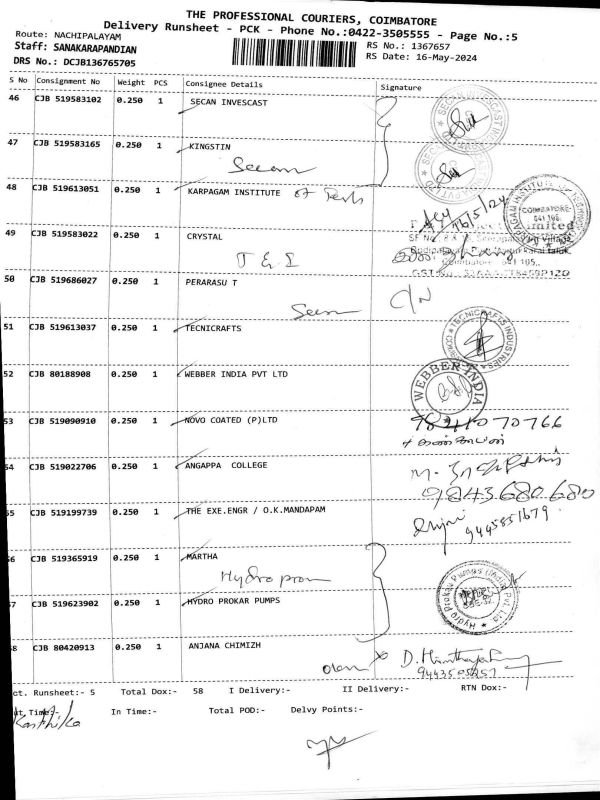 THE PROFESSIONAL COURIERS, COIMBATORE
Delivery Runsheet - PCK - Phone No.:0422-3505555 - Page No.:5
Route: NACHIPALAYAM
RS No.: 1367657
Staff: SANAKARAPANDIAN
RS Date: 16-May-2024
DRS No.: DCJB136765705
S No Consignment No Weight PCS Consignee Details Signature
46 CJB 519583102 0.250 1 SECAN INVESCAST
47 CJB 519583165 0.250 1 KINGSTIN
Secan
48 CJB 519613051 0.250 1 KARPAGAM INSTITUTE of Tech
16/5/24
KARPAGAM INSTITUTE OF TECHNOLOGY
COIMBATORE-
641 105.
49 CJB 519583022 0.250 1 CRYSTAL
Limited
T & I
50 CJB 519686027 0.250 1 PERARASU T
51 CJB 519613037 0.250 1 TECNICRAFTS
TECNICRAFTS INDUSTRIES
52 CJB 80188908 0.250 1 WEBBER INDIA PVT LTD
WEBBER INDIA
53 CJB 519090910 0.250 1 NOVO COATED (P)LTD
9841070766
54 CJB 519022706 0.250 1 ANGAPPA COLLEGE
9843680680
55 CJB 519199739 0.250 1 THE EXE.ENGR / O.K.MANDAPAM
9445851679
56 CJB 519365919 0.250 1 MARTHA
Hydro prom
57 CJB 519623902 0.250 1 HYDRO PROKAR PUMPS
Hydro Prokav Pumps (India) Pvt. Ltd
58 CJB 80420913 0.250 1 ANJANA CHIMIZH
ct. Runsheet:- 5 Total Dox:- 58 I Delivery:- II Delivery:- RTN Dox:-
ut Time:- In Time:- Total POD:- Delvy Points:-
Karthika